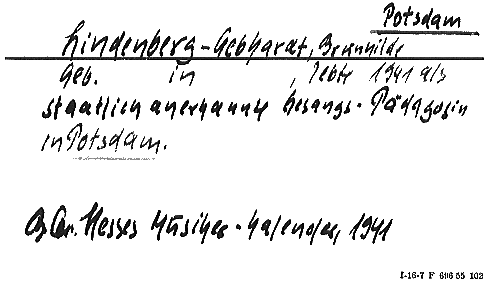 Potsdam
Lindenberg-Gebhardt, Brunhilde
Geb. in , lebte 1941 als
staatlich anerkannte Gesangs-Pädagogin
in Potsdam.
Hesses Musiker-Kalender, 1941
I-16-7 F 696 55 102